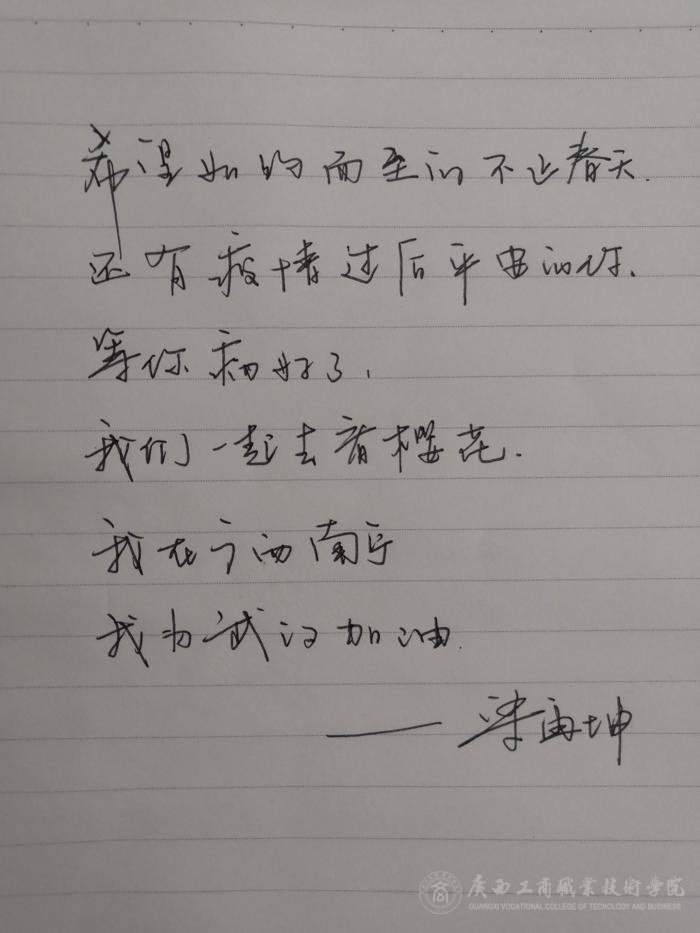 希望如约而至的不止春天.
还有疫情过后平安的你.
等你病好了,
我们一起去看樱花.
我在广西南宁
我为武汉加油.
——梁宙坤
广西工商职业技术学院
GUANGXI VOCATIONAL COLLEGE OF TECNOLOGY AND BUSINESS